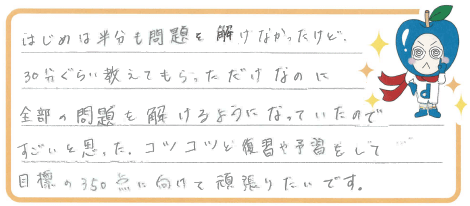 はじめは半分も問題を解けなかったけど、
30分ぐらい教えてもらっただけなのに
全部の問題を解けるようになっていたので
すごいと思った。コツコツと復習や予習をして
目標の350点に向けて頑張りたいです。
d